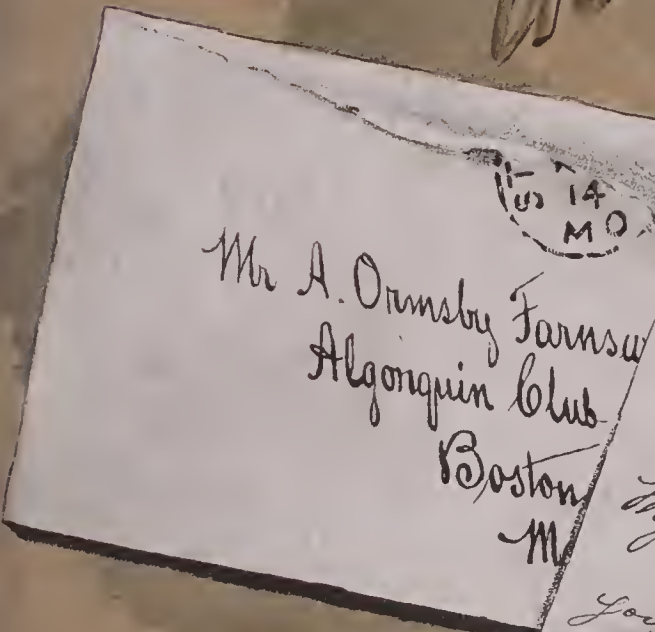 14
MO
Mr A. Ormsby Farnsw
Algonquin Club
Boston
M